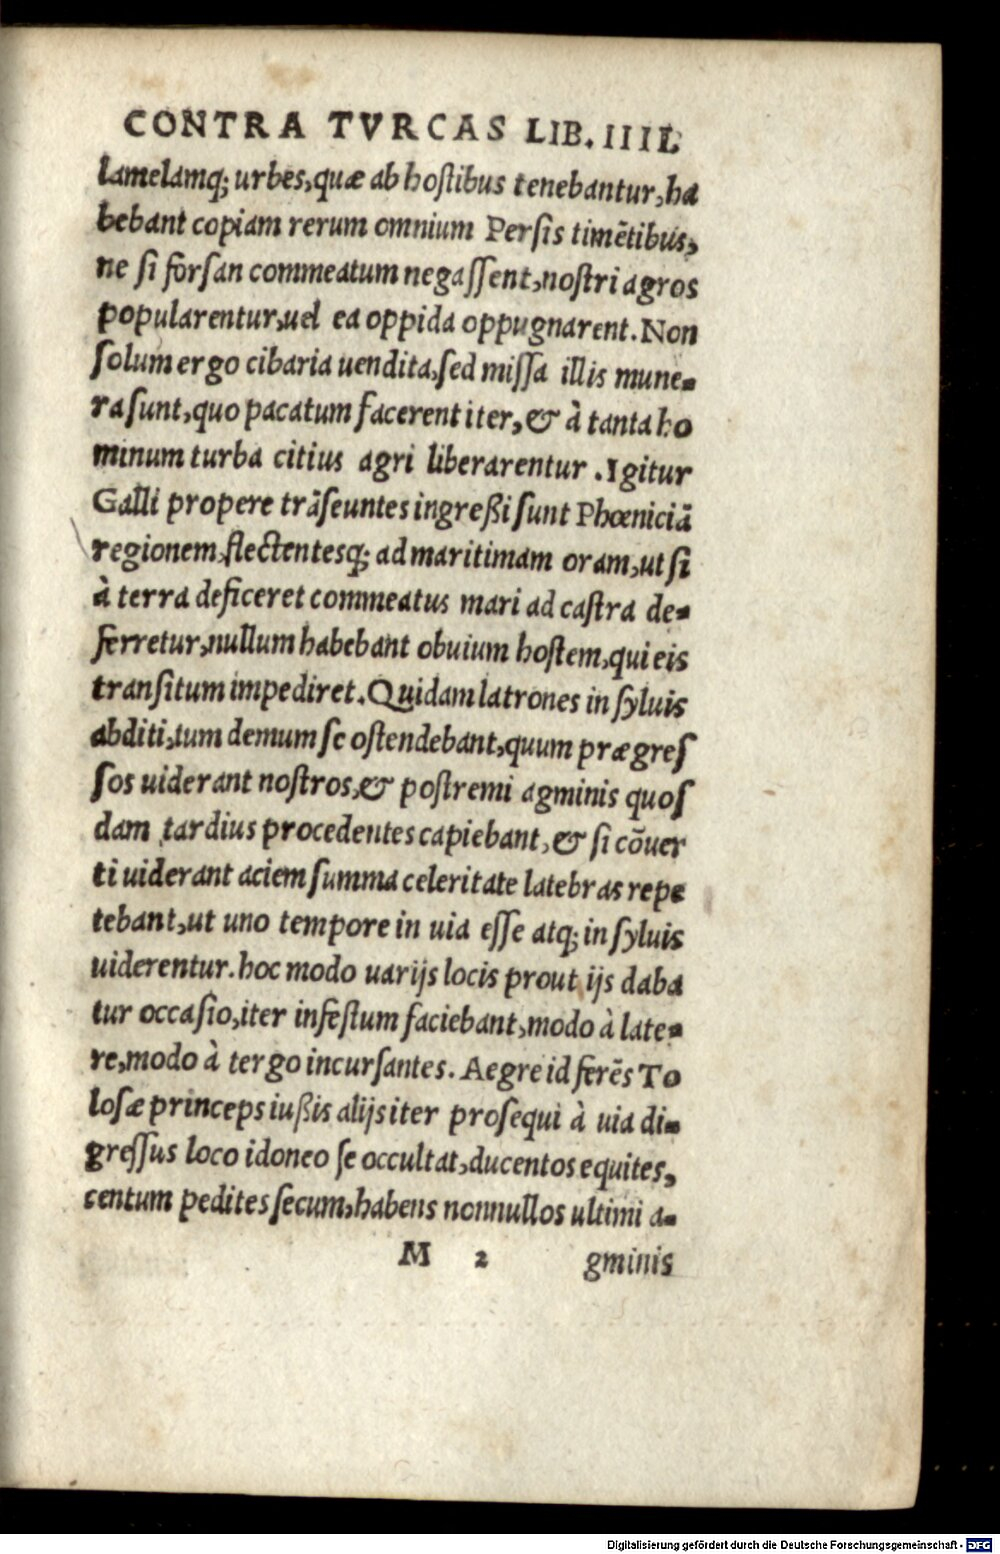 CONTRA TVRCAS LIB. IIII.
lamelamq; urbes, quæ ab hoſtibus tenebantur, ha
bebant copiam rerum omnium Perſis timẽtibus,
ne ſi forſan commeatum negaſſent, noſtri agros
popularentur, uel ea oppida oppugnarent. Non
ſolum ergo cibaria uendita, ſed miſſa illis mune-
ra ſunt, quo pacatum facerent iter, & à tanta ho
minum turba citius agri liberarentur. Igitur
Galli propere trãſeuntes ingreßi ſunt Phœniciã
regionem, flectentesq; ad maritimam oram, ut ſi
à terra deficeret commeatus mari ad caſtra de-
ferretur, nullum habebant obuium hoſtem, qui eis
tranſitum impediret. Quidam latrones in ſyluis
abditi, tum demum ſe oſtendebant, quum prægreſ
ſos uiderant noſtros, & poſtremi agminis quoſ
dam tardius procedentes capiebant, & ſi cõuer
ti uiderant aciem ſumma celeritate latebras repe
tebant, ut uno tempore in uia eſſe atq; in ſyluis
uiderentur. hoc modo uarijs locis prout ijs daba
tur occaſio, iter infeſtum faciebant, modo à late-
re, modo à tergo incurſantes. Aegre id ferẽs To
loſæ princeps iußis alijs iter proſequi à uia di-
greſſus loco idoneo ſe occultat, ducentos equites,
centum pedites ſecum, habens nonnullos ultimi a-
M 2 gminis
Digitalisierung gefördert durch die Deutsche Forschungsgemeinschaft - DFG